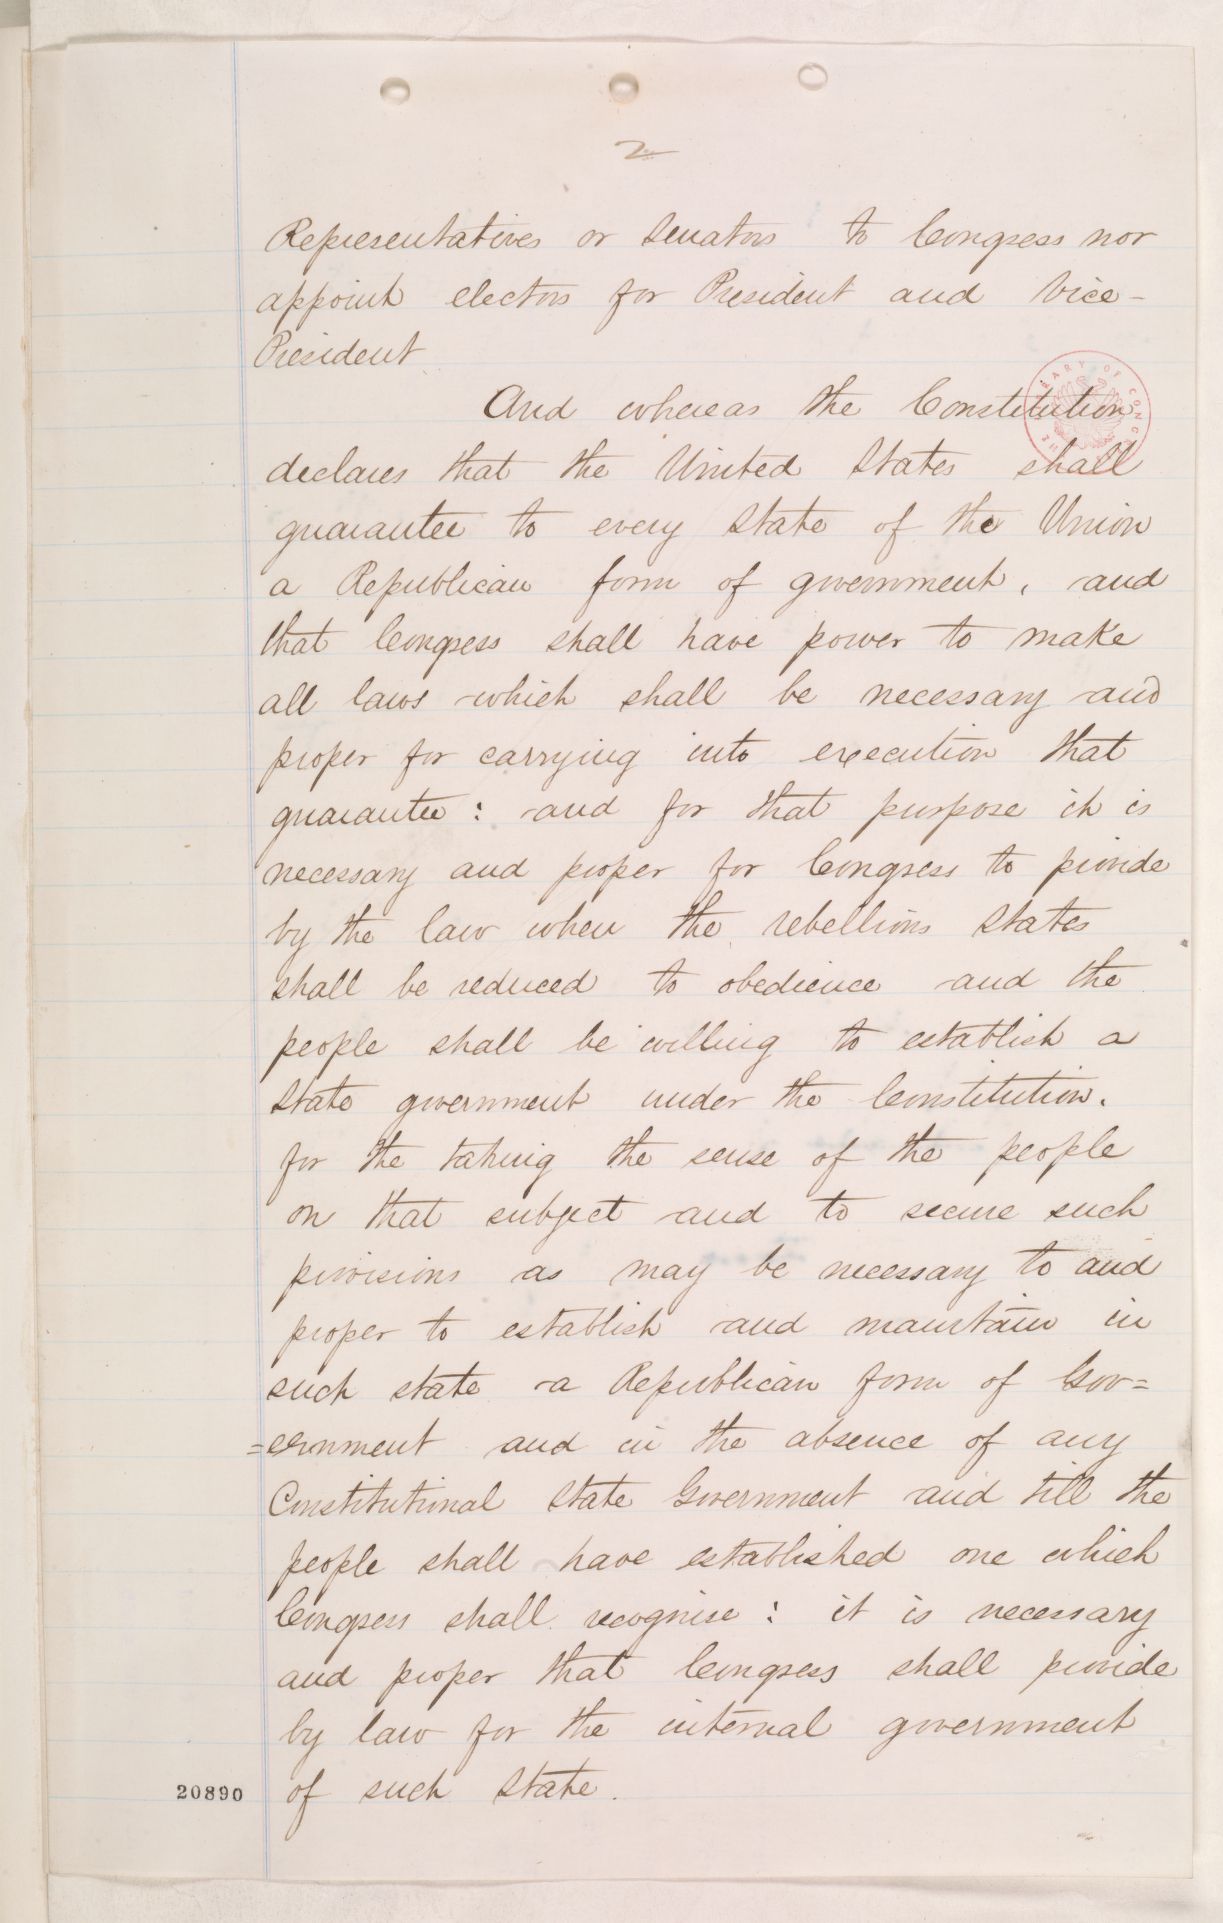 2
Representatives or Senators to Congress nor
appoint electors for President and Vice-
President
And whereas the Constitution
declares that the United States shall
guarantee to every State of the Union
a Republican form of government, and
that Congress shall have power to make
all laws which shall be necessary and
proper for carrying into execution that
guarantee: and for that purpose it is
necessary and proper for Congress to provide
by the law when the rebellious States
shall be reduced to obedience and the
people shall be willing to establish a
State government under the Constitution.
for the taking the sense of the people
on that subject and to secure such
provisions as may be necessary to and
proper to establish and maintain in
such state a Republican form of Gov=
=ernment and in the absence of any
Constitutional State Government and till the
people shall have established one which
Congress shall recognise: it is necessary
and proper that Congress shall provide
by law for the internal government
20890 of such State.